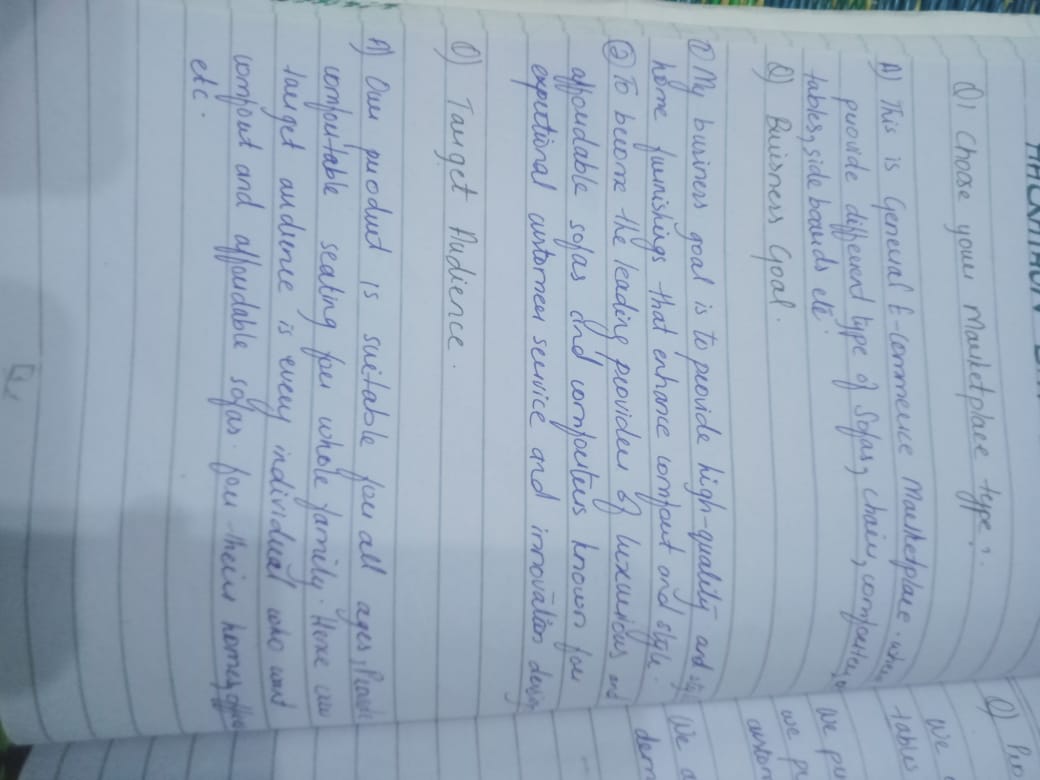 HACKATHON
Q) Chose your Marketplace type?
A) This is General E-commerce Marketplace. where
provide different type of Sofas, chairs, comforters,
tables, side boards etc.
Q) Buisness Goal.
1) My business goal is to provide high-quality and
home furnishings that enhance comfort and style.
2) To become the leading provider of luxurious and
affordable sofas and comforters known for
expectional customer service and innovation design
Q) Target Audience.
A) Our product is suitable for all ages, Provide
comfortable seating for whole family. Here our
target audience is every individual who want
comfort and affordable sofas for their homes, office
etc.
Q)
We
tables
We
we
custom
We
dem